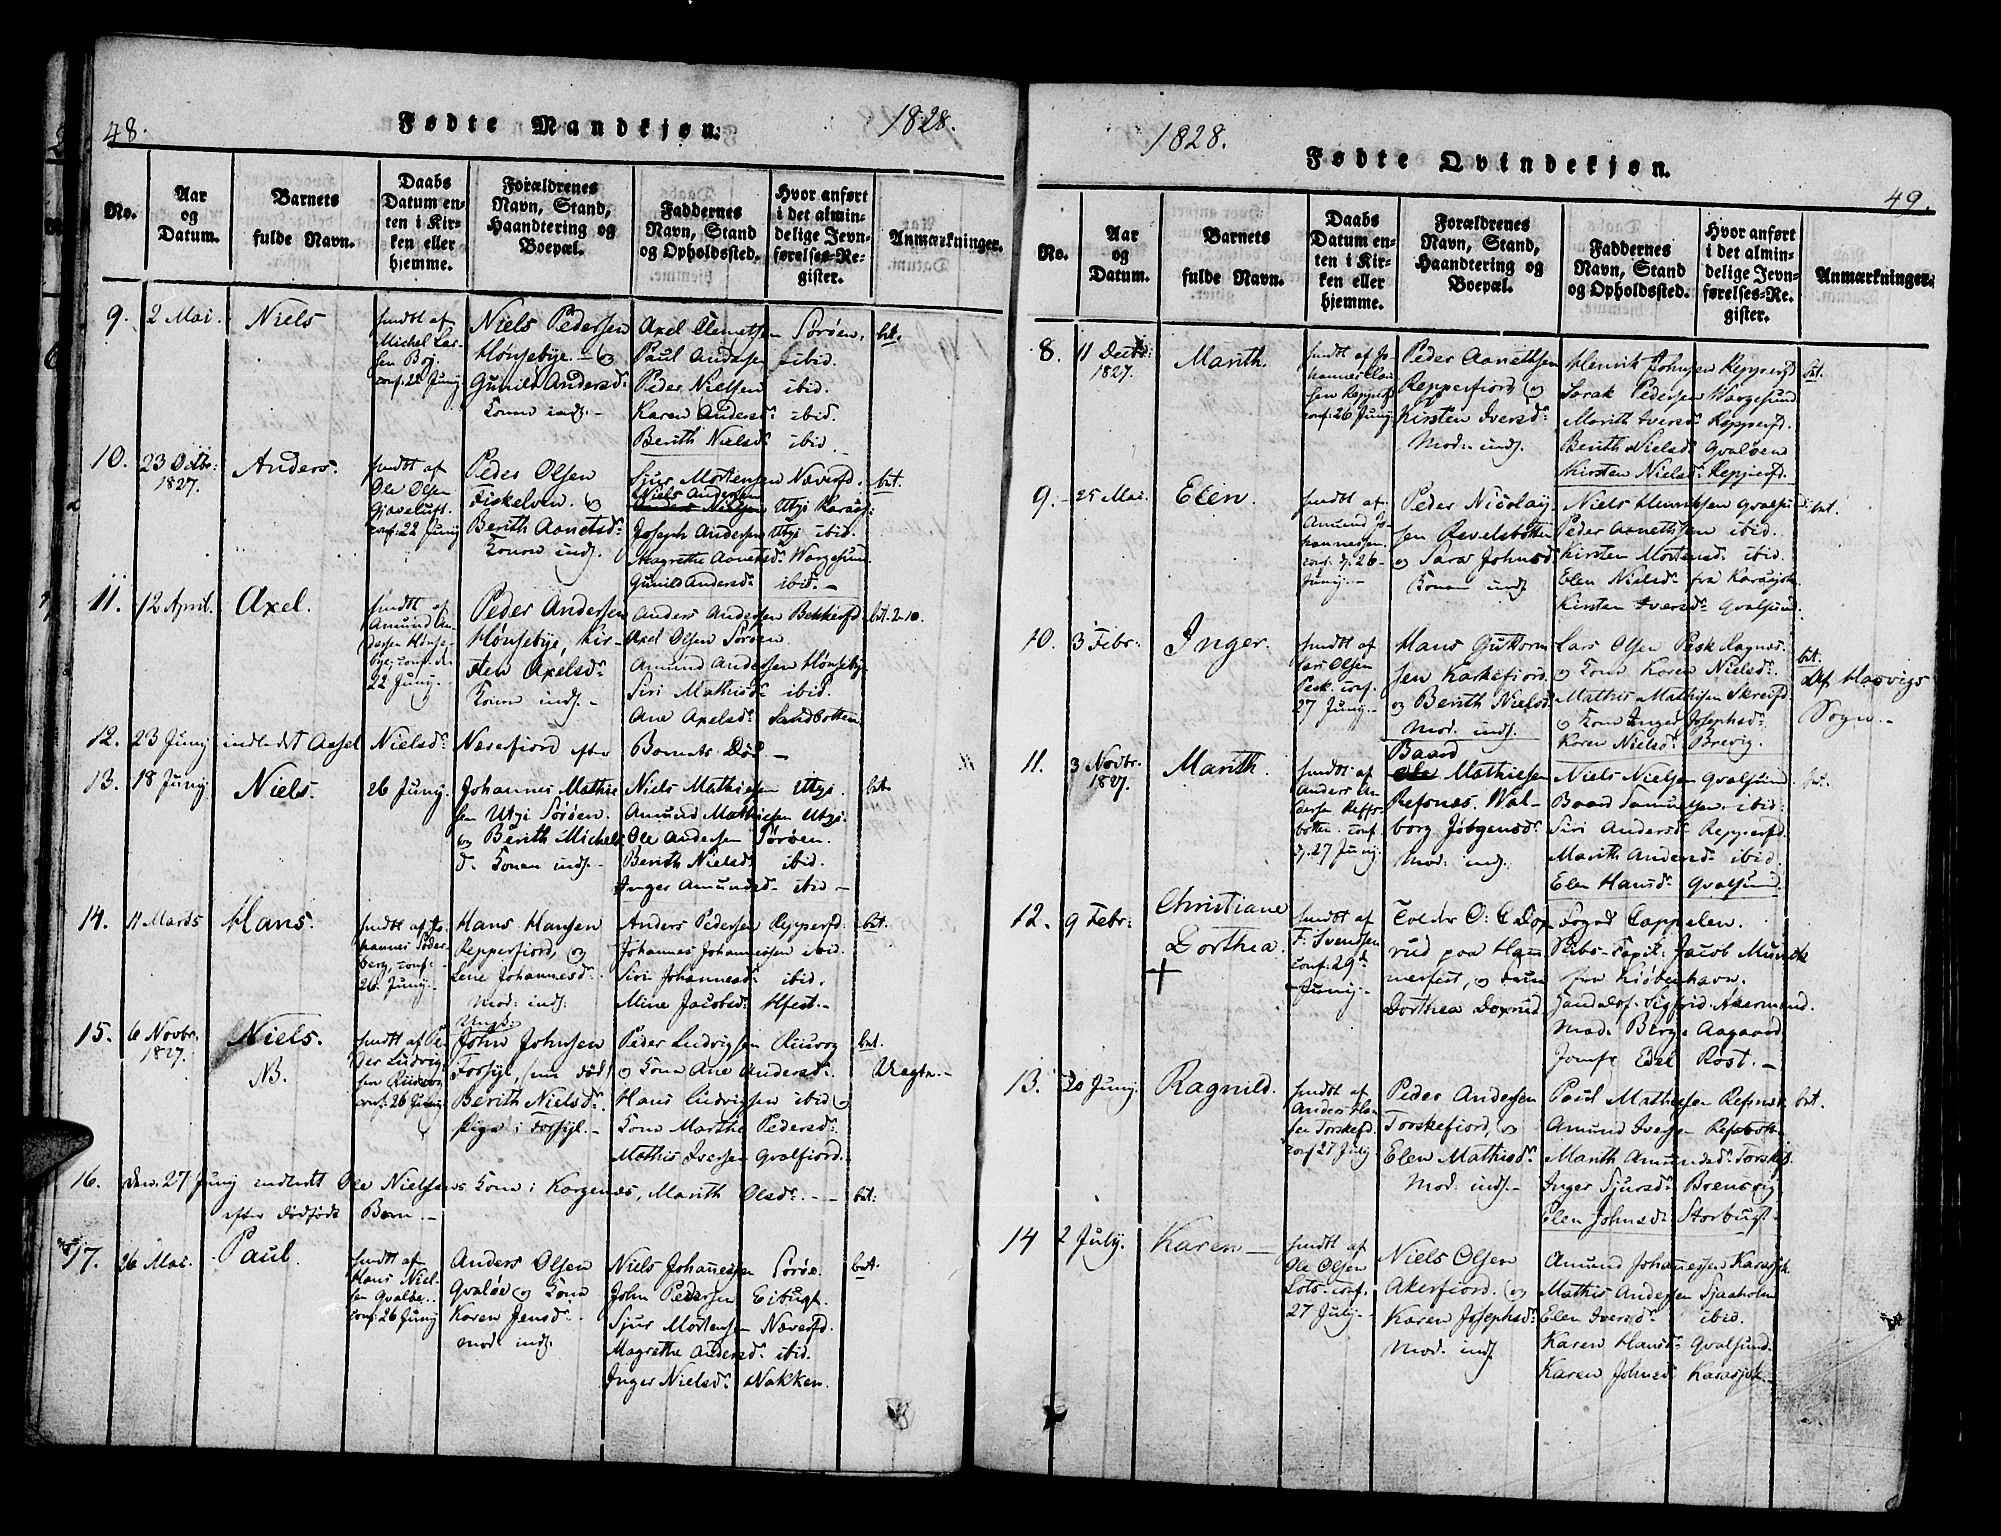 48.
Fødte Mandkjøn.
1828.
No.
Aar og Datum.
Barnets fulde Navn.
Daabs Datum enten i Kirken eller hjemme.
Forældrenes Navn, Stand, Haandtering og Boepæl.
Faddernes Navn, Stand og Opholdssted.
Hvor anført i det almindelige Jevnførelses-Register.
Anmærkninger.
9. 2 Mai. Niels
hmdt af
Michel Lar-
sen Boj.
conf. 22 Junij
Niels Pedersen
Hønsebye. - og
Gunild Andersd.
Kone indf. -
Axel Clemetsen Sørøen.
Paul Andersen ibid.
Peder Nielsen ibid.
Karen Andersd. ibid.
Berith Nielsd. ibid.
bet.
10. 23 Octbr: 1827. Anders.
hmdt af
Ole Olsen
Gjaveluft.
conf: 22 Junij
Peder Olsen
Fiskelven. og
Berith Aanetsd.
Konen indf.
Sjur Mortensen Næverfd.
Niels Andersen
Anders Nielsen Utgj Karasj:
Joseph Andersen Utgj ibid.
Magrethe Aanetsd. Wargesund
Gunild Andersd. ibid. -
bet.
11. 12 April. Axel.
hmdt af
Amund An-
dersen Hønse-
bye, conf. den
22 Junij.
Peder Andersen
Hønsebye, Kir-
sten Axelsd.
Konen indf. -
Anders Andersen Bekkerfd.
Axel Olsen Sørøen.
Amund Andersen Hønseby
Siri Mathisd. ibid.
Ane Axelsd. Sandbotten
bet. 2-10.
12. 23 Junij indledt Assel Nielsd. Næsefiord efter Barnets Død -
13. 18 Junij Niels. 26 Junij.
Johannes Mathi-
sen Utgj Sørøen.
og Berith Michels
d. Konen indf. -
Niels Mathisen Utgj.
Amund Mathisen Utgj.
Ole Andersen Sørøen.
Berith Nielsd. ibid.
Inger Amundsd. ibid -
bet.
14. 11 Marts Hans.
hmdt af Jo-
hannes Søder-
berg, conf:
26 Junij. -
Hans Hansen
Repperfiord, og
Lene Johannesd.
mod: indf.
Anders Pedersen Repperfd.
Johannes Johannessen ibid.
Siri Johannesd. ibid.
Mine Jacobsd. Hfest. -
bet.
15. 6 Novbr. 1827. Niels.
NB.
hmdt af Pe-
der Ludvig-
sen
conf. 26 Junij
Ungk.
John Johnsen
Forsyl, (nu død)
Berith Nielsd.
pige i Forsyl. -
Peder Ludvigsen
og Kone Ane Andersd.
Hans Ludvigsen ibid og
Kone Marthe Pedersd.
Mathis Iversen Qvalfiord.
bet.
Uegte. -
16. Den 27 Junij indledt Ole Nielsens Kone i Korgenæs, Marith Olsd. - - bet:
efter dødfødt Barn. -
17. 26 Mai. Paul.
hmdt af
Hans Niel-
sen Qvaløe.
conf. 26 Junij
Anders Olsen
Qvaløe og Kone
Karen Jensd.
mod. indf.
Niels Johannesen Sørøe.
John Pedersen Eibugt.
Sjur Mortensen Næverfd.
Magrethe Andersd. ibid.
Inger Nielsd. Nakken.
bet.
1828.
Fødte Qvindekjøn.
49.
No.
Aar og Datum.
Barnets fulde Navn.
Daabs Datum enten i Kirken eller hjemme.
Forældrenes Navn, Stand, Haandtering og Boepæl.
Faddernes Navn, Stand og Opholdssted.
Hvor anført i det almindelige Jevnførelses-Register.
Anmærkninger.
8. 11 Decbr: 1827. Marith.
hmdt af Jo-
hannes Clai-
sen Repperfd
conf. 26 Junij
Peder Aanethsen
Repperfiord og
Kirsten Iversd.
Mod: indf.
Henrik Johnsen Repperfd
Sarak Pedersen Wargesund
Marith Iversd. Repperfd.
Berith Nielsd. Qvaløen
Kirsten Nielsd. Repperfd.
bet.
9. 25 Mai. Elen.
hmdt af
Amund Jo-
hannessen.
conf. d. 26
Junij. -
Peder Nicolaj-
sen Revelsbotten
og Sara Johnsd.
Konen indf.
Niels Henriksen Qvalsund
Peder Aanethsen ibid.
Kirsten Mortensd. ibid.
Elen Nielsd. fra Karasjok
Kirsten Iversd. Qvalsund.
bet.
10. 3 Febr: Inger.
hmdt af
Lars Olsen
Pesk. conf.
27 Junij. -
Hans Guttorm-
sen Kaskefiord
og Berith Nielsd.
Mod. indf.
Lars Olsen Pesk Ragnæs.
og Kone Karen Nielsd.
Mathis Mathisen Skreifd
og Kone Inger Josephsd.
Karen Nielsd. Brevig.
bet.
Af Hasvigs
Sogn. -
11. 3 Novbr. 1827. Marith.
hmdt af
Anders An-
dersen Reffs-
botten. conf.
d. 27 Junij.
Baard
Ole Mathiesen
Refsnæs. Wal-
borg Jørgensd.
mod: indf.
Niels Nielsen Qvalsund
Baard Samuelsen. ibid:
Siri Andersd. Repperfd
Marith Andersd. ibid.
Elen Hansd. Qvalsund.
bet.
12. 9 Febr: Christiane
Dorthea.
hmdt af
F: Svendsen
conf: 29de
Junij. -
Tolder O: C. Dox-
rud paa Ham-
merfest, og Frue
Dorthea Doxrud.
Foged Cappelen.
Skibs-Capit: Jacob Munck
fra Kiöbenhavn.
Handelsf. Sigfrid Akermand.
Mad. Berge Aagaard
Jomfr Edel Rost. -
13. 20 Junij. Ragnild.
hmdt af
Anders Han-
sen Torskefd.
conf 27 July
Peder Andersen
Torskefiord, og
Elen Mathisd.
Mod: indf. -
Paul Mathisen Refsnæs
Amund Iversen Refsbotn.
Marith Amundsd. Torskefd.
Inger Sjursd. Brensvig
Elen Johnsd. Storbugt.
bet.
14 2 July. Karen -
hmdt af
Ole Olsen
Lots. conf.
27 July. -
Niels Olsen
Akerfiord. og
Karen Josephsd.
Mod. indf.
Amund Johannessen Karasjok.
Mathis Andersen Sjaaholm
Elen Iversd. ibid.
Karen Hansd. Qvalsund.
Karen Johnsd. Karasjok. -